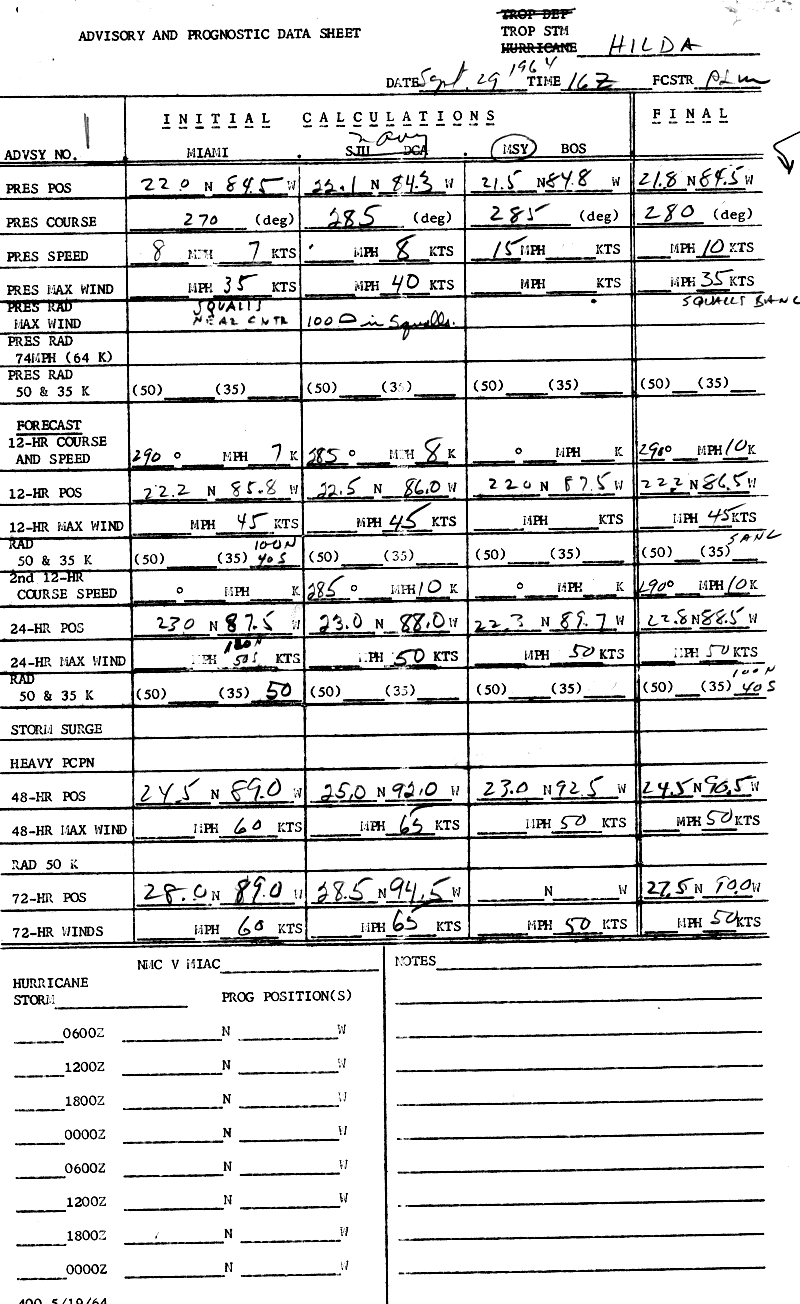 TROP DEP
ADVISORY AND PROGNOSTIC DATA SHEET TROP STM
HURRICANE HILDA
DATE Sept. 29 1964 TIME 16Z FCSTR
INITIAL CALCULATIONS FINAL
Navy
ADVSY NO. 1 MIAMI SJU DCA MSY BOS
PRES POS 22.0 N 84.5 W 22.1 N 84.3 W 21.5 N 84.8 W 21.8 N 84.5 W
PRES COURSE 270 (deg) 285 (deg) 285 (deg) 280 (deg)
PRES SPEED 8 MPH 7 KTS MPH 8 KTS 15 MPH KTS MPH 10 KTS
PRES MAX WIND MPH 35 KTS MPH 40 KTS MPH KTS MPH 35 KTS
PRES RAD SQUALLS SQUALLS
MAX WIND NEAR CNTR 100 in Squalls.
PRES RAD
74MPH (64 K)
PRES RAD
50 & 35 K (50) (35) (50) (35) (50) (35) (50) (35)
FORECAST
12-HR COURSE
AND SPEED 290 ° MPH 7 K 285 ° MPH 8 K ° MPH K 290° MPH 10 K
12-HR POS 22.2 N 85.8 W 22.5 N 86.0 W 22.0 N 87.5 W 22.2 N 86.5 W
12-HR MAX WIND MPH 45 KTS MPH 45 KTS MPH KTS MPH 45 KTS
RAD 100N
50 & 35 K (50) (35) 40S (50) (35) (50) (35) (50) (35)
2nd 12-HR
COURSE SPEED ° MPH K 285 ° MPH 10 K ° MPH K 290° MPH 10 K
24-HR POS 23.0 N 87.5 W 23.0 N 88.0 W 22.3 N 89.7 W 22.8 N 88.5 W
24-HR MAX WIND MPH 50 KTS MPH 50 KTS MPH 50 KTS MPH 50 KTS
RAD 100N
50 & 35 K (50) (35) 50 (50) (35) (50) (35) (50) (35) 40S
STORM SURGE
HEAVY PCPN
48-HR POS 24.5 N 89.0 W 25.0 N 92.0 W 23.0 N 92.5 W 24.5 N 90.5 W
48-HR MAX WIND MPH 60 KTS MPH 65 KTS MPH 50 KTS MPH 50 KTS
RAD 50 K
72-HR POS 28.0 N 89.0 W 28.5 N 94.5 W N W 27.5 N 90.0 W
72-HR WINDS MPH 60 KTS MPH 65 KTS MPH 50 KTS MPH 50 KTS
NMC V MIAC NOTES
HURRICANE
STORM PROG POSITION(S)
0600Z N W
1200Z N W
1800Z N W
0000Z N W
0600Z N W
1200Z N W
1800Z N W
0000Z N W
400 5/19/64